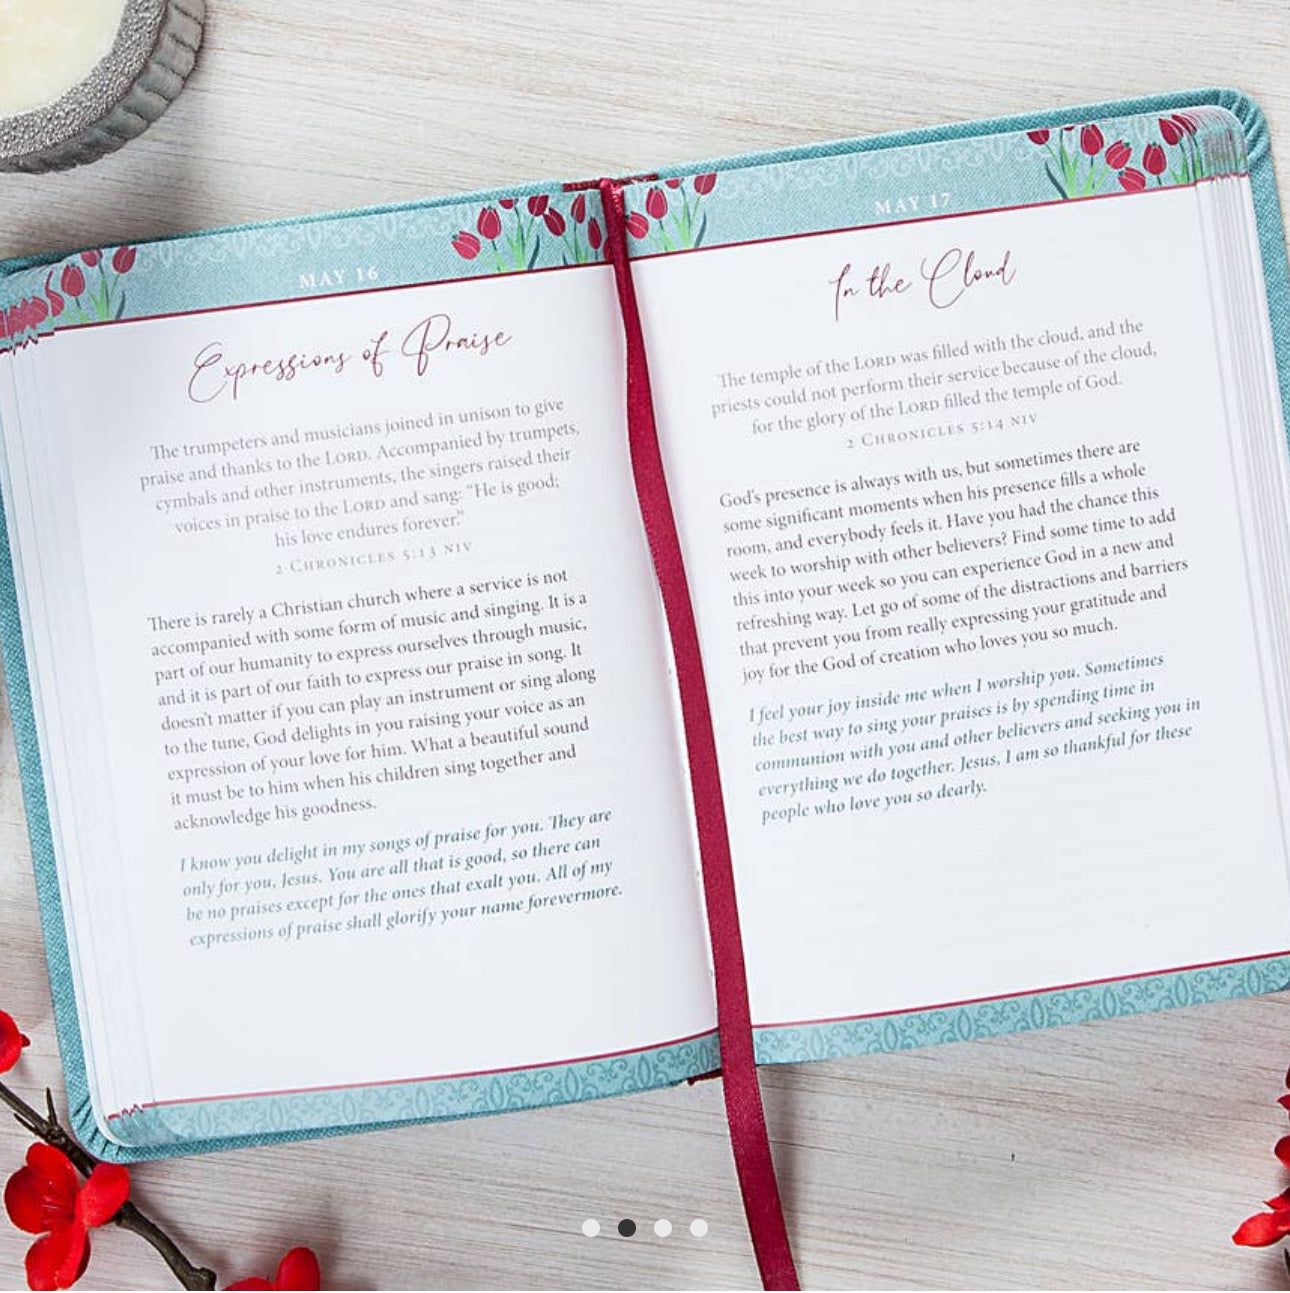 MAY 16
Expressions of Praise
The trumpeters and musicians joined in unison to give
praise and thanks to the LORD. Accompanied by trumpets,
cymbals and other instruments, the singers raised their
voices in praise to the LORD and sang: “He is good;
his love endures forever.”
2 CHRONICLES 5:13 NIV
There is rarely a Christian church where a service is not
accompanied with some form of music and singing. It is a
part of our humanity to express ourselves through music,
and it is part of our faith to express our praise in song. It
doesn't matter if you can play an instrument or sing along
to the tune, God delights in you raising your voice as an
expression of your love for him. What a beautiful sound
it must be to him when his children sing together and
acknowledge his goodness.
I know you delight in my songs of praise for you. They are
only for you, Jesus. You are all that is good, so there can
be no praises except for the ones that exalt you. All of my
expressions of praise shall glorify your name forevermore.
MAY 17
In the Cloud
The temple of the LORD was filled with the cloud, and the
priests could not perform their service because of the cloud,
for the glory of the LORD filled the temple of God.
2 CHRONICLES 5:14 NIV
God's presence is always with us, but sometimes there are
some significant moments when his presence fills a whole
room, and everybody feels it. Have you had the chance this
week to worship with other believers? Find some time to add
this into your week so you can experience God in a new and
refreshing way. Let go of some of the distractions and barriers
that prevent you from really expressing your gratitude and
joy for the God of creation who loves you so much.
I feel your joy inside me when I worship you. Sometimes
the best way to sing your praises is by spending time in
communion with you and other believers and seeking you in
everything we do together. Jesus, I am so thankful for these
people who love you so dearly.